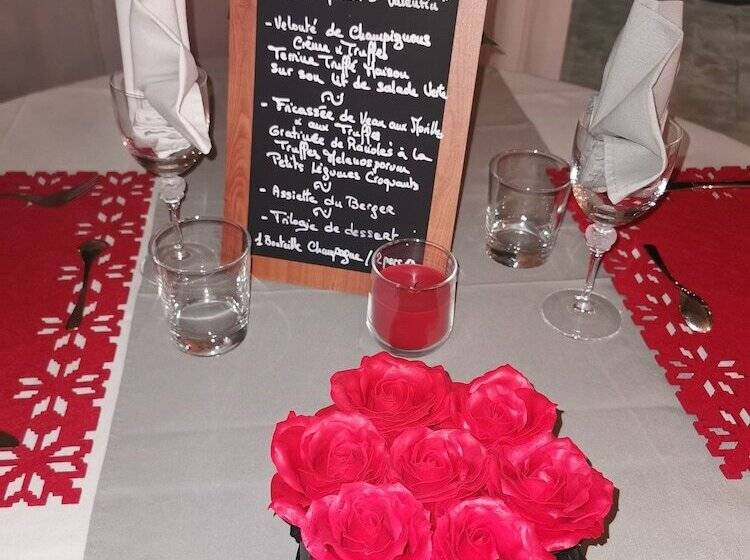 Valentin"
- Velouté de Champignons
Crème & Truffes
Terrine Truffé Maison
sur son lit de salade Verte
- Fricassée de Veau aux Morilles
& aux Truffes
Gratinée de Ravioles à la
Truffes Melanosporum
Petits Légumes Croquants
- Assiette du Berger
- Trilogie de dessert
1 Bouteille Champagne / 2 pers